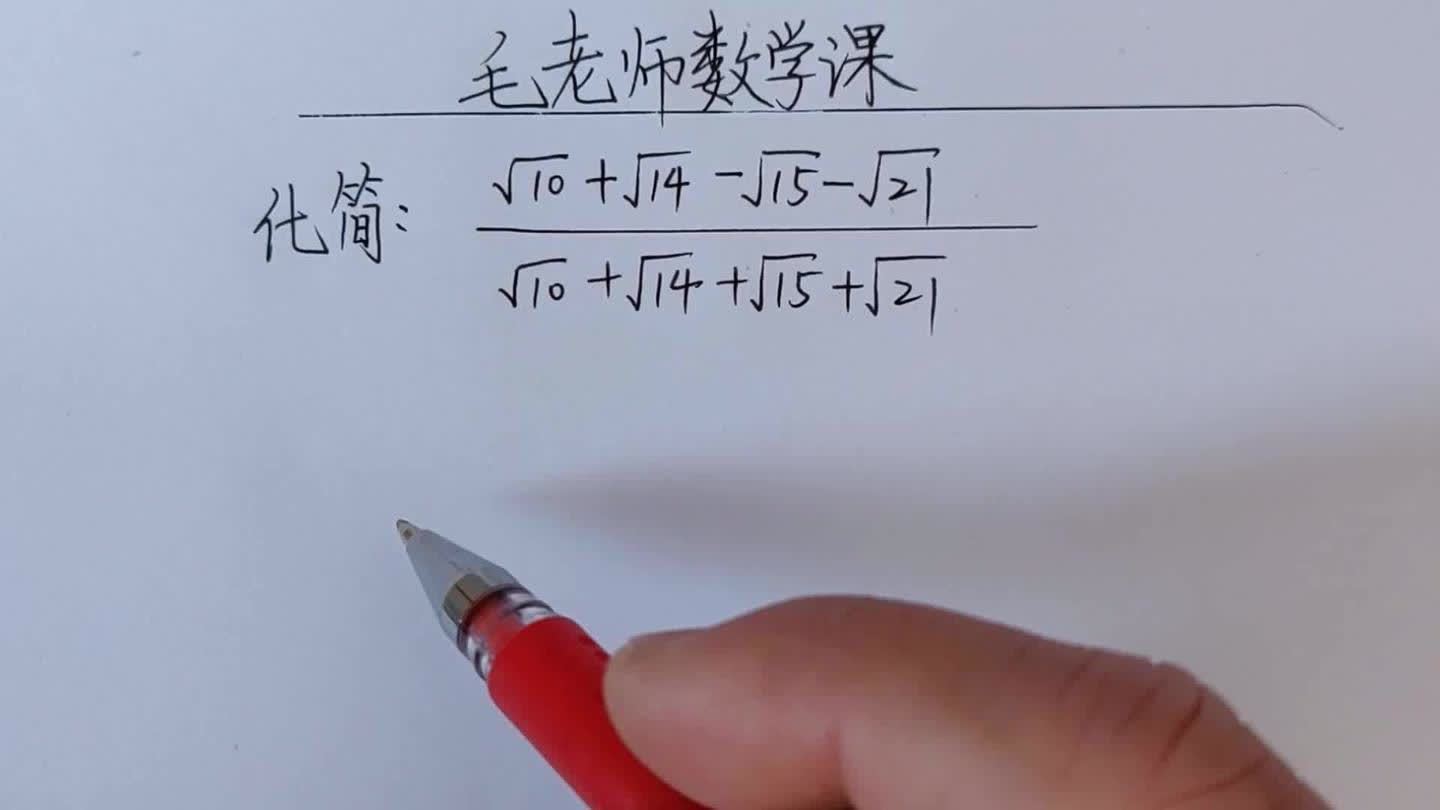 毛老师数学课
化简: \frac{\sqrt{10}+\sqrt{14}-\sqrt{15}-\sqrt{21}}{\sqrt{10}+\sqrt{14}+\sqrt{15}+\sqrt{21}}